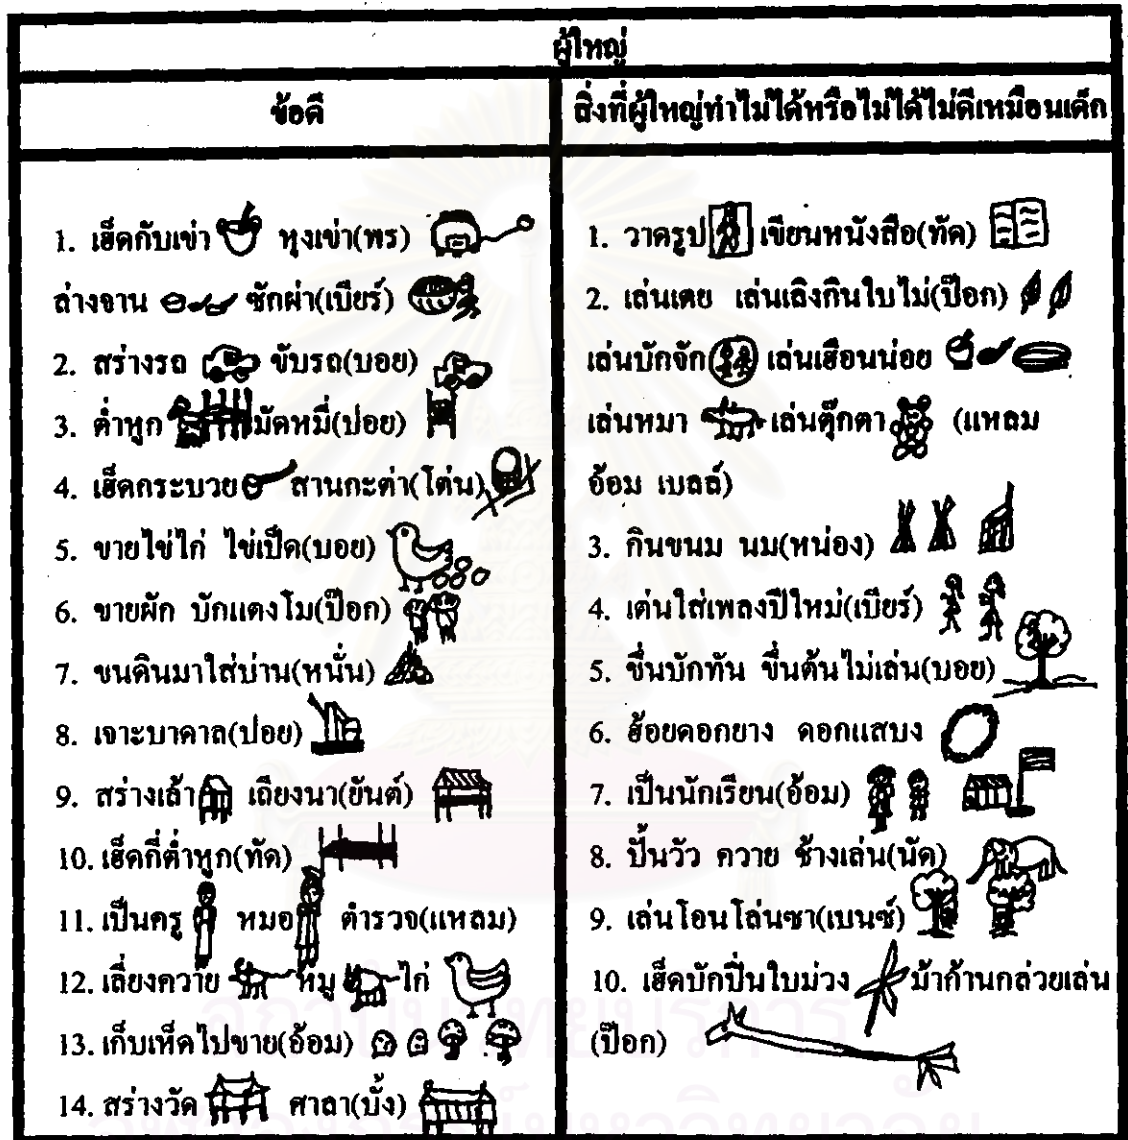 ผู้ใหญ่
ข้อดี
1. เฮ็ดกับเข่า หุงเข่า(พร)
ล่างจาน ซักผ่า(เบียร์)
2. สร่างรถ ขับรถ(บอย)
3. ต่ำหูก มัดหมี่(ปอย)
4. เฮ็ดกระบวย สานกะต่า(โต่น)
5. ขายไข่ไก่ ไข่เป็ด(บอย)
6. ขายผัก บักแตงโม(ป๊อก)
7. ขนดินมาใส่บ่าน(หนั่น)
8. เจาะบาดาล(ปอย)
9. สร่างเล้า เถียงนา(ยันต์)
10. เฮ็ดกี่ต่ำหูก(ทัด)
11. เป็นครู หมอ ตำรวจ(แหลม)
12. เลี่ยงควาย หมู ไก่
13. เก็บเห็ดไปขาย(อ้อม)
14. สร่างวัด ศาลา(บั้ง)
สิ่งที่ผู้ใหญ่ทำไม่ได้หรือไม่ได้ไม่ดีเหมือนเด็ก
1. วาดรูป เขียนหนังสือ(ทัด)
2. เล่นเตย เล่นเลิงกินใบไม่(ป๊อก)
เล่นบักจัก เล่นเฮือนน่อย
เล่นหมา เล่นตุ๊กตา (แหลม
อ้อม เบลล์)
3. กินขนม นม(หน่อง)
4. เต่นใส่เพลงปีใหม่(เบียร์)
5. ขึ่นบักทัน ขึ่นต้นไม่เล่น(บอย)
6. ฮ้อยดอกยาง ดอกแสบง
7. เป็นนักเรียน(อ้อม)
8. ปั้นวัว ควาย ช้างเล่น(นัด)
9. เล่นโอนโล่นซา(เบนซ์)
10. เฮ็ดบักปิ่นใบม่วง ม้าก้านกล่วยเล่น
(ป๊อก)
สถาบันวิทยบริการ
จุฬาลงกรณ์มหาวิทยาลัย